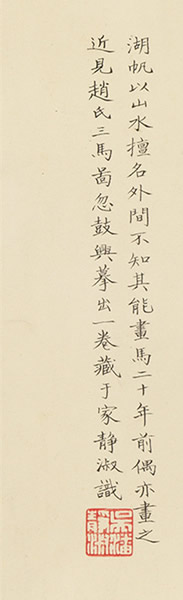 湖帆以山水擅名外間不知其能畫馬二十年前偶亦畫之
近見趙氏三馬啚忽鼓興摹出一卷藏于家靜淑識
吳潘靜淑